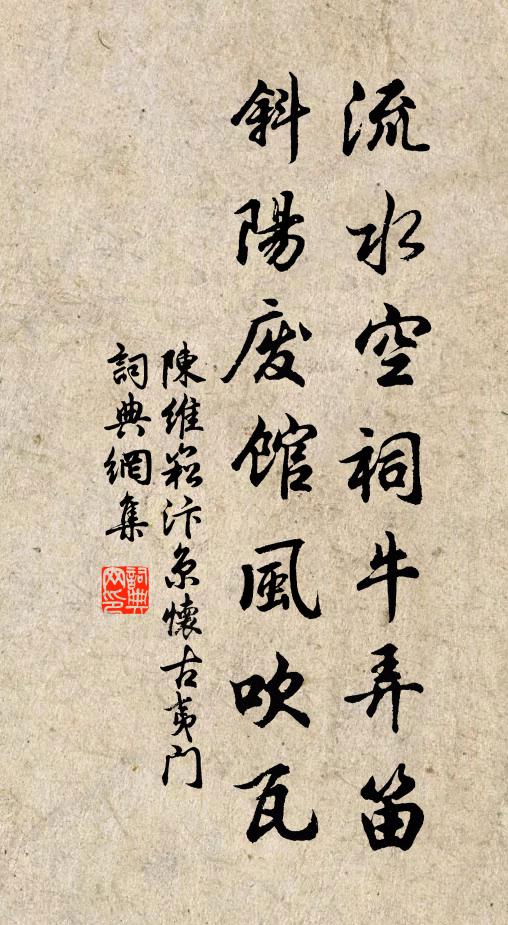 流水空祠牛弄笛
斜陽废館風吹瓦
陳維崧汴京懷古夷門
詞典網集
詞典網印